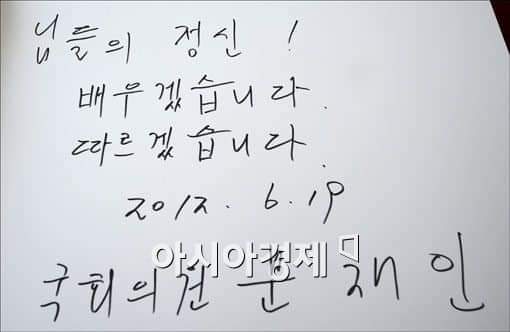 님들의 정신!
배우겠습니다.
따르겠습니다.
2012. 6. 19
아시아경제
국회의원 문재인